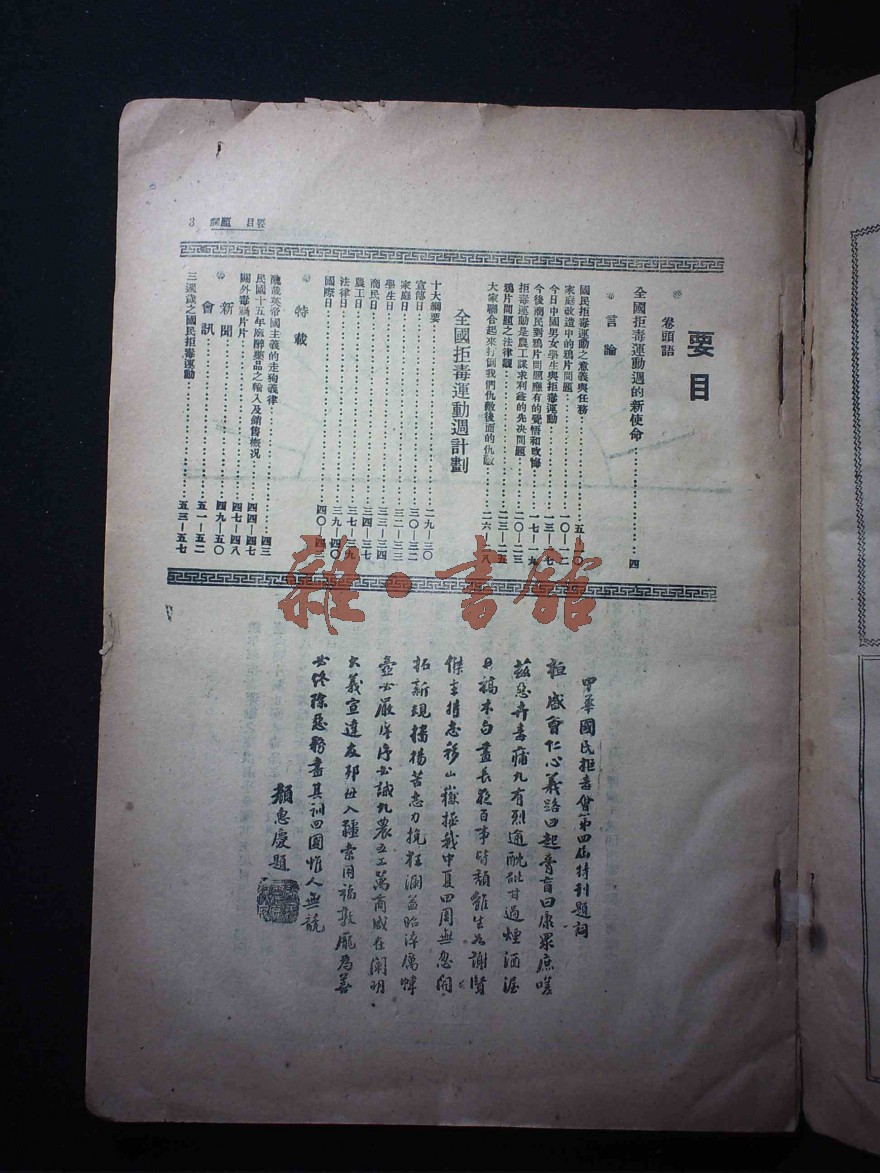 3 詞題 目要
要目
卷頭語
全國拒毒運動週的新使命………四
言論
國民拒毒運動之意義與任務………五—一〇
家庭改造中的鴉片問題………一〇—一二
今日中國男女學生與拒毒運動………一三—一七
今後商民對鴉片問題應有的覺悟和改悔………一七—一九
拒毒運動是農工謀求利益的先決問題………二〇—二三
鴉片問題之法律觀………二三—二五
大家聯合起來打倒我們仇敵後面的仇敵………二六—二八
全國拒毒運動週計劃
十大綱要………二九—三〇
宣傳日
家庭日………三〇—三二
學生日………三二—三三
商民日………三三—三四
農工日………三四—三七
法律日………三七—三九
國際日………三九—四〇
特載
醜哉英帝國主義的走狗義律………四三
民國十五年麻醉藥品之輸入及銷售概况………四四—四七
國外毒禍片片………四七—四八
新聞………四九—五〇
會訊………五一—五二
三週歲之國民拒毒運動………五三—五七
中華國民拒毒會第四屆特刊題詞
拒 盛會仁心義路曰起膏肓曰康眾庶嗟
茲惡卉毒痡九有烈逾酖 甘過煙酒
槁木白晝長夜百事皆頹雖生 謝賢
傑主持志移山嶽拯我中夏四周無忽
拓新規揚苦志力挽狂瀾
嚴 誠九農五工萬商咸在闡明
大義宣達友邦 入疆索用福敦龐為善
必終除惡務盡其訓四國惟人無競
顏惠慶題
雜·書館